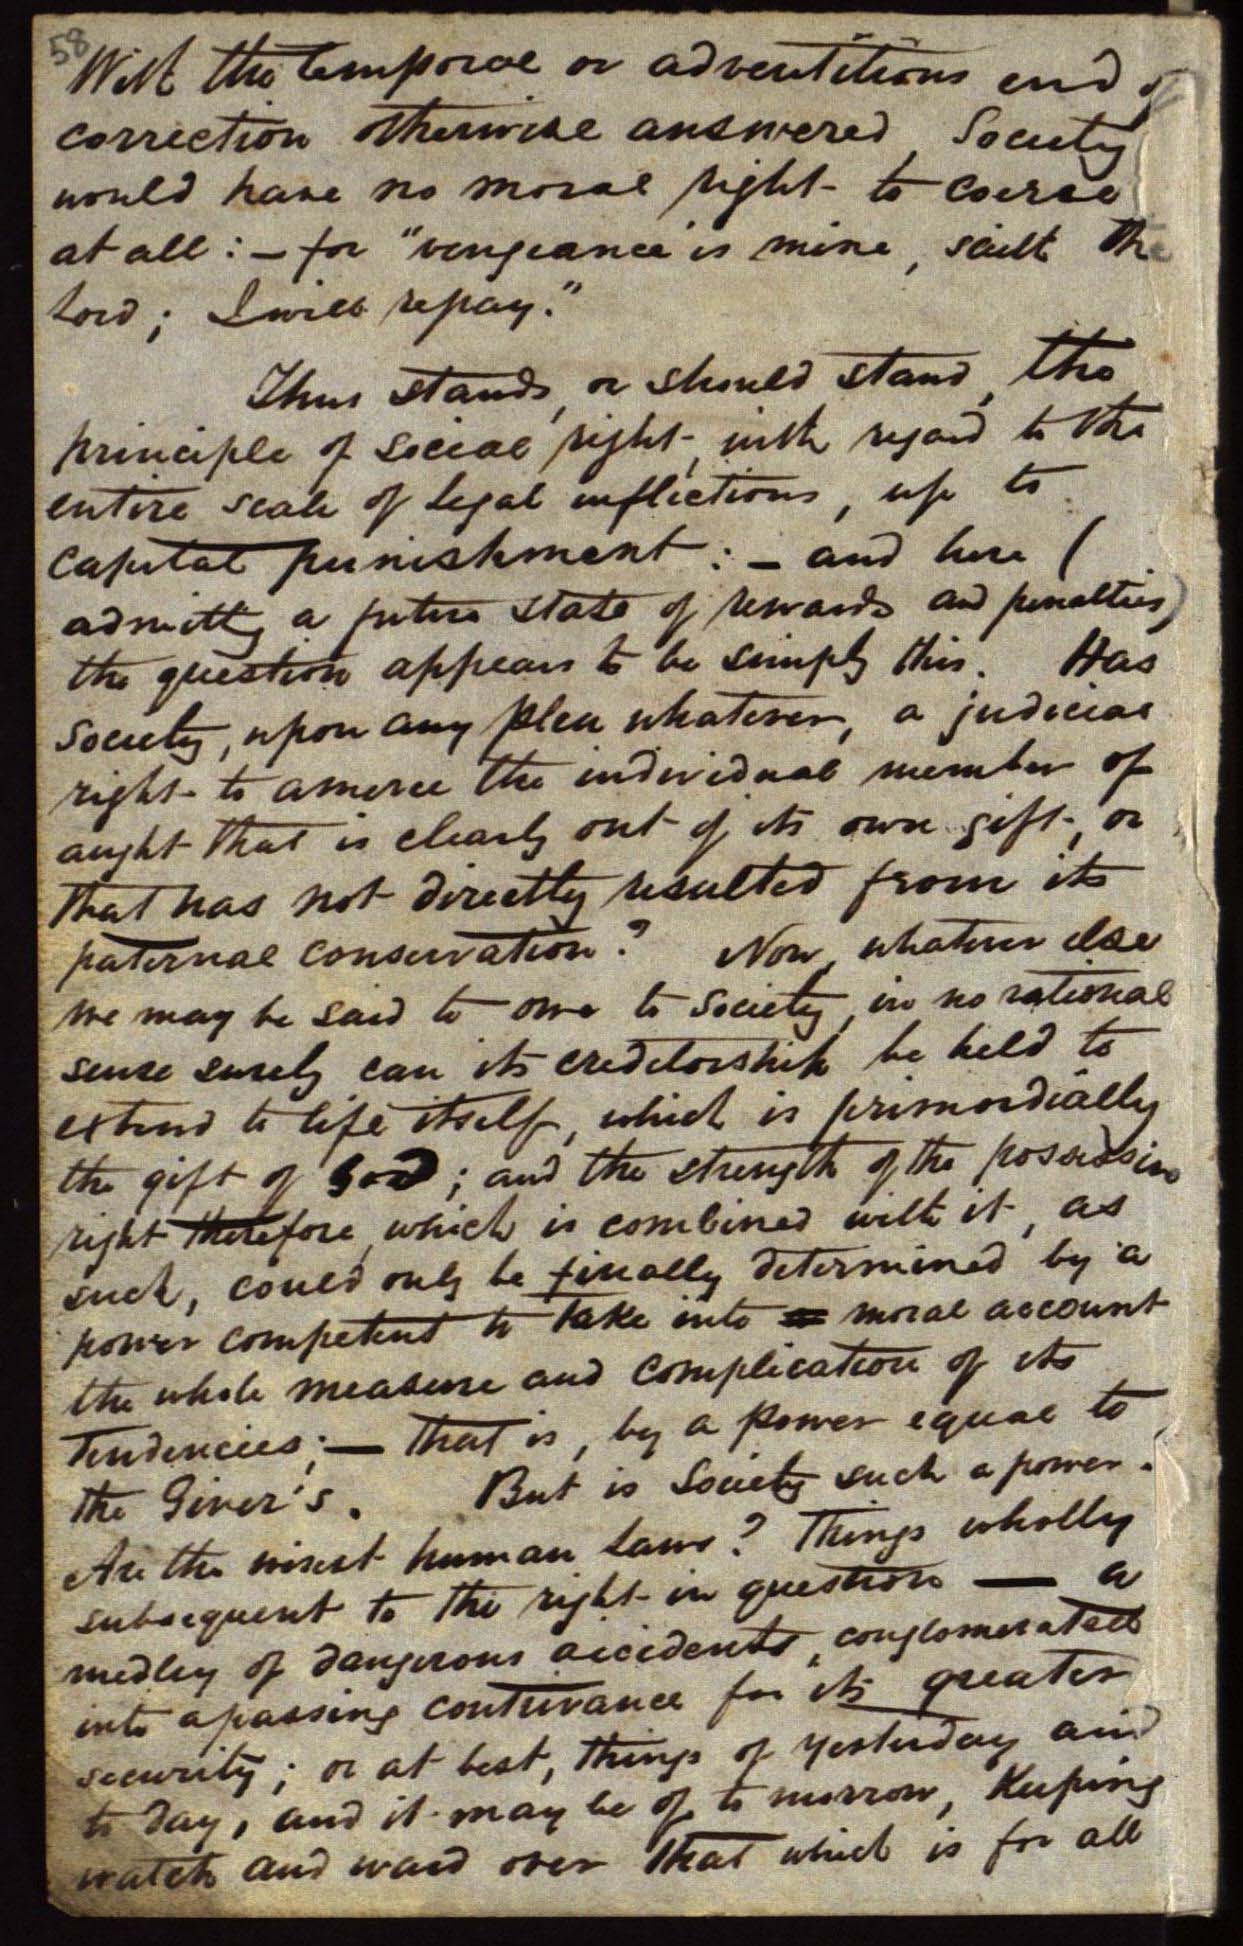 58
With the temporal or adventitious end of
correction otherwise answered, Society
would have no moral right to coerce
at all :— for "vengeance is mine, saith the
Lord; I will repay."
Thus stands, or should stand, the
principle of social right, with regard to the
entire scale of legal inflictions, up to
capital punishment :— and here (
admitting a future state of rewards and penalties)
the question appears to be simply this. Has
Society, upon any plea whatever, a judicial
right to amerce the individual member of
aught that is clearly out of its own gift, or
that has not directly resulted from its
paternal conservation? Now, whatever else
we may be said to owe to Society, in no rational
sense surely can its creditorship be held to
extend to life itself, which is primordially
the gift of God; and the strength of the possessive
right therefore, which is combined with it, as
such, could only be finally determined by a
power competent to take into moral account
the whole measure and complication of its
tendencies; — that is, by a power equal to
the Giver's. But is Society such a power.
Are the wisest human laws? Things wholly
subsequent to the right in question — a
medley of dangerous accidents, conglomerated
into a passing contrivance for its greater
security; or at best, things of yesterday and
to day, and it may be of to morrow, keeping
watch and ward over that which is for all